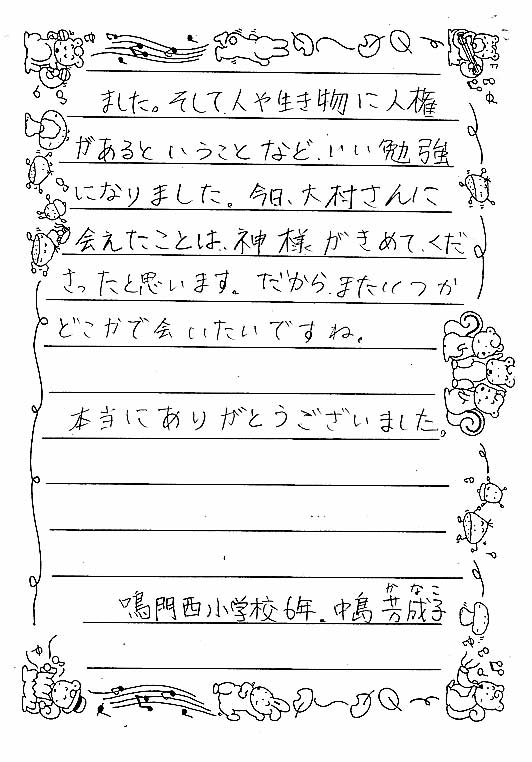 ました。そして、人や生き物に人権
があるということなど、いい勉強
になりました。今日、大村さんに
会えたことは、神様がきめて、くだ
さったと思います。だから、またいつか
どこかで会いたいですね。
本当にありがとうございました。
かなこ
鳴門西小学校6年。中島芳成子